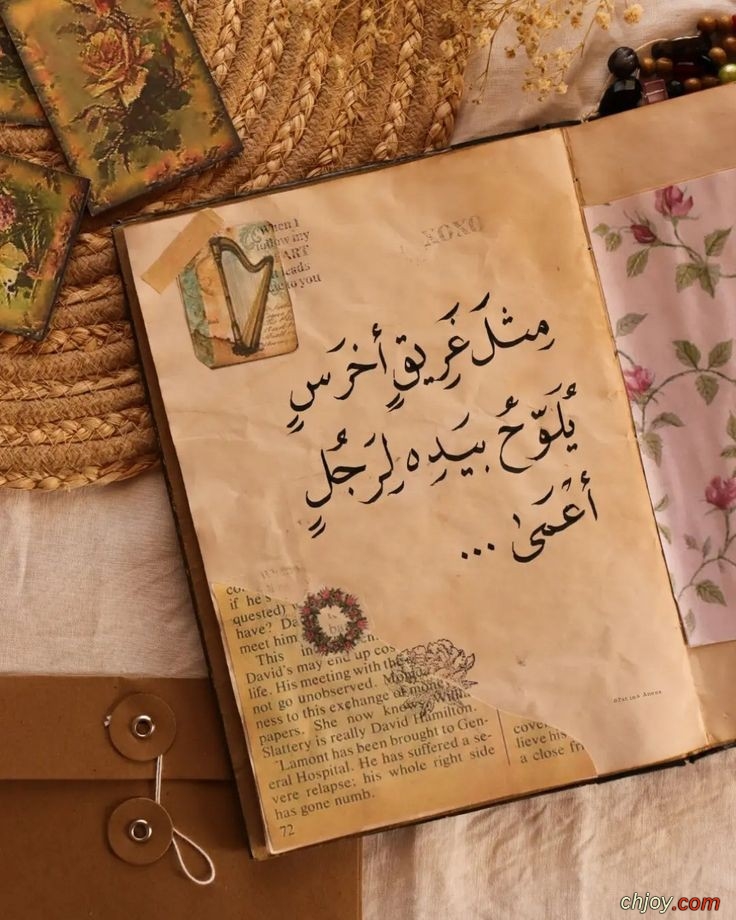 When I
follow my
ART
leads
to you
XOXO
مِثلَ غَرِيقٍ أخرَسٍ
يُلَوّحُ بيَدِه لِرَجُلٍ
أعْمَىٰ ...
if he's
quested)
have? Da
meet him
This in
David's may end up cos
life. His meeting with the
not go unobserved.
ness to this exchange of
papers. She now knows
Slattery is really David Hamilton.
Lamont has been brought to Gen-
eral Hospital. He has suffered a se-
vere relapse; his whole right side
has gone numb.
72
cover
lieve his
a close fri
chjoy.com